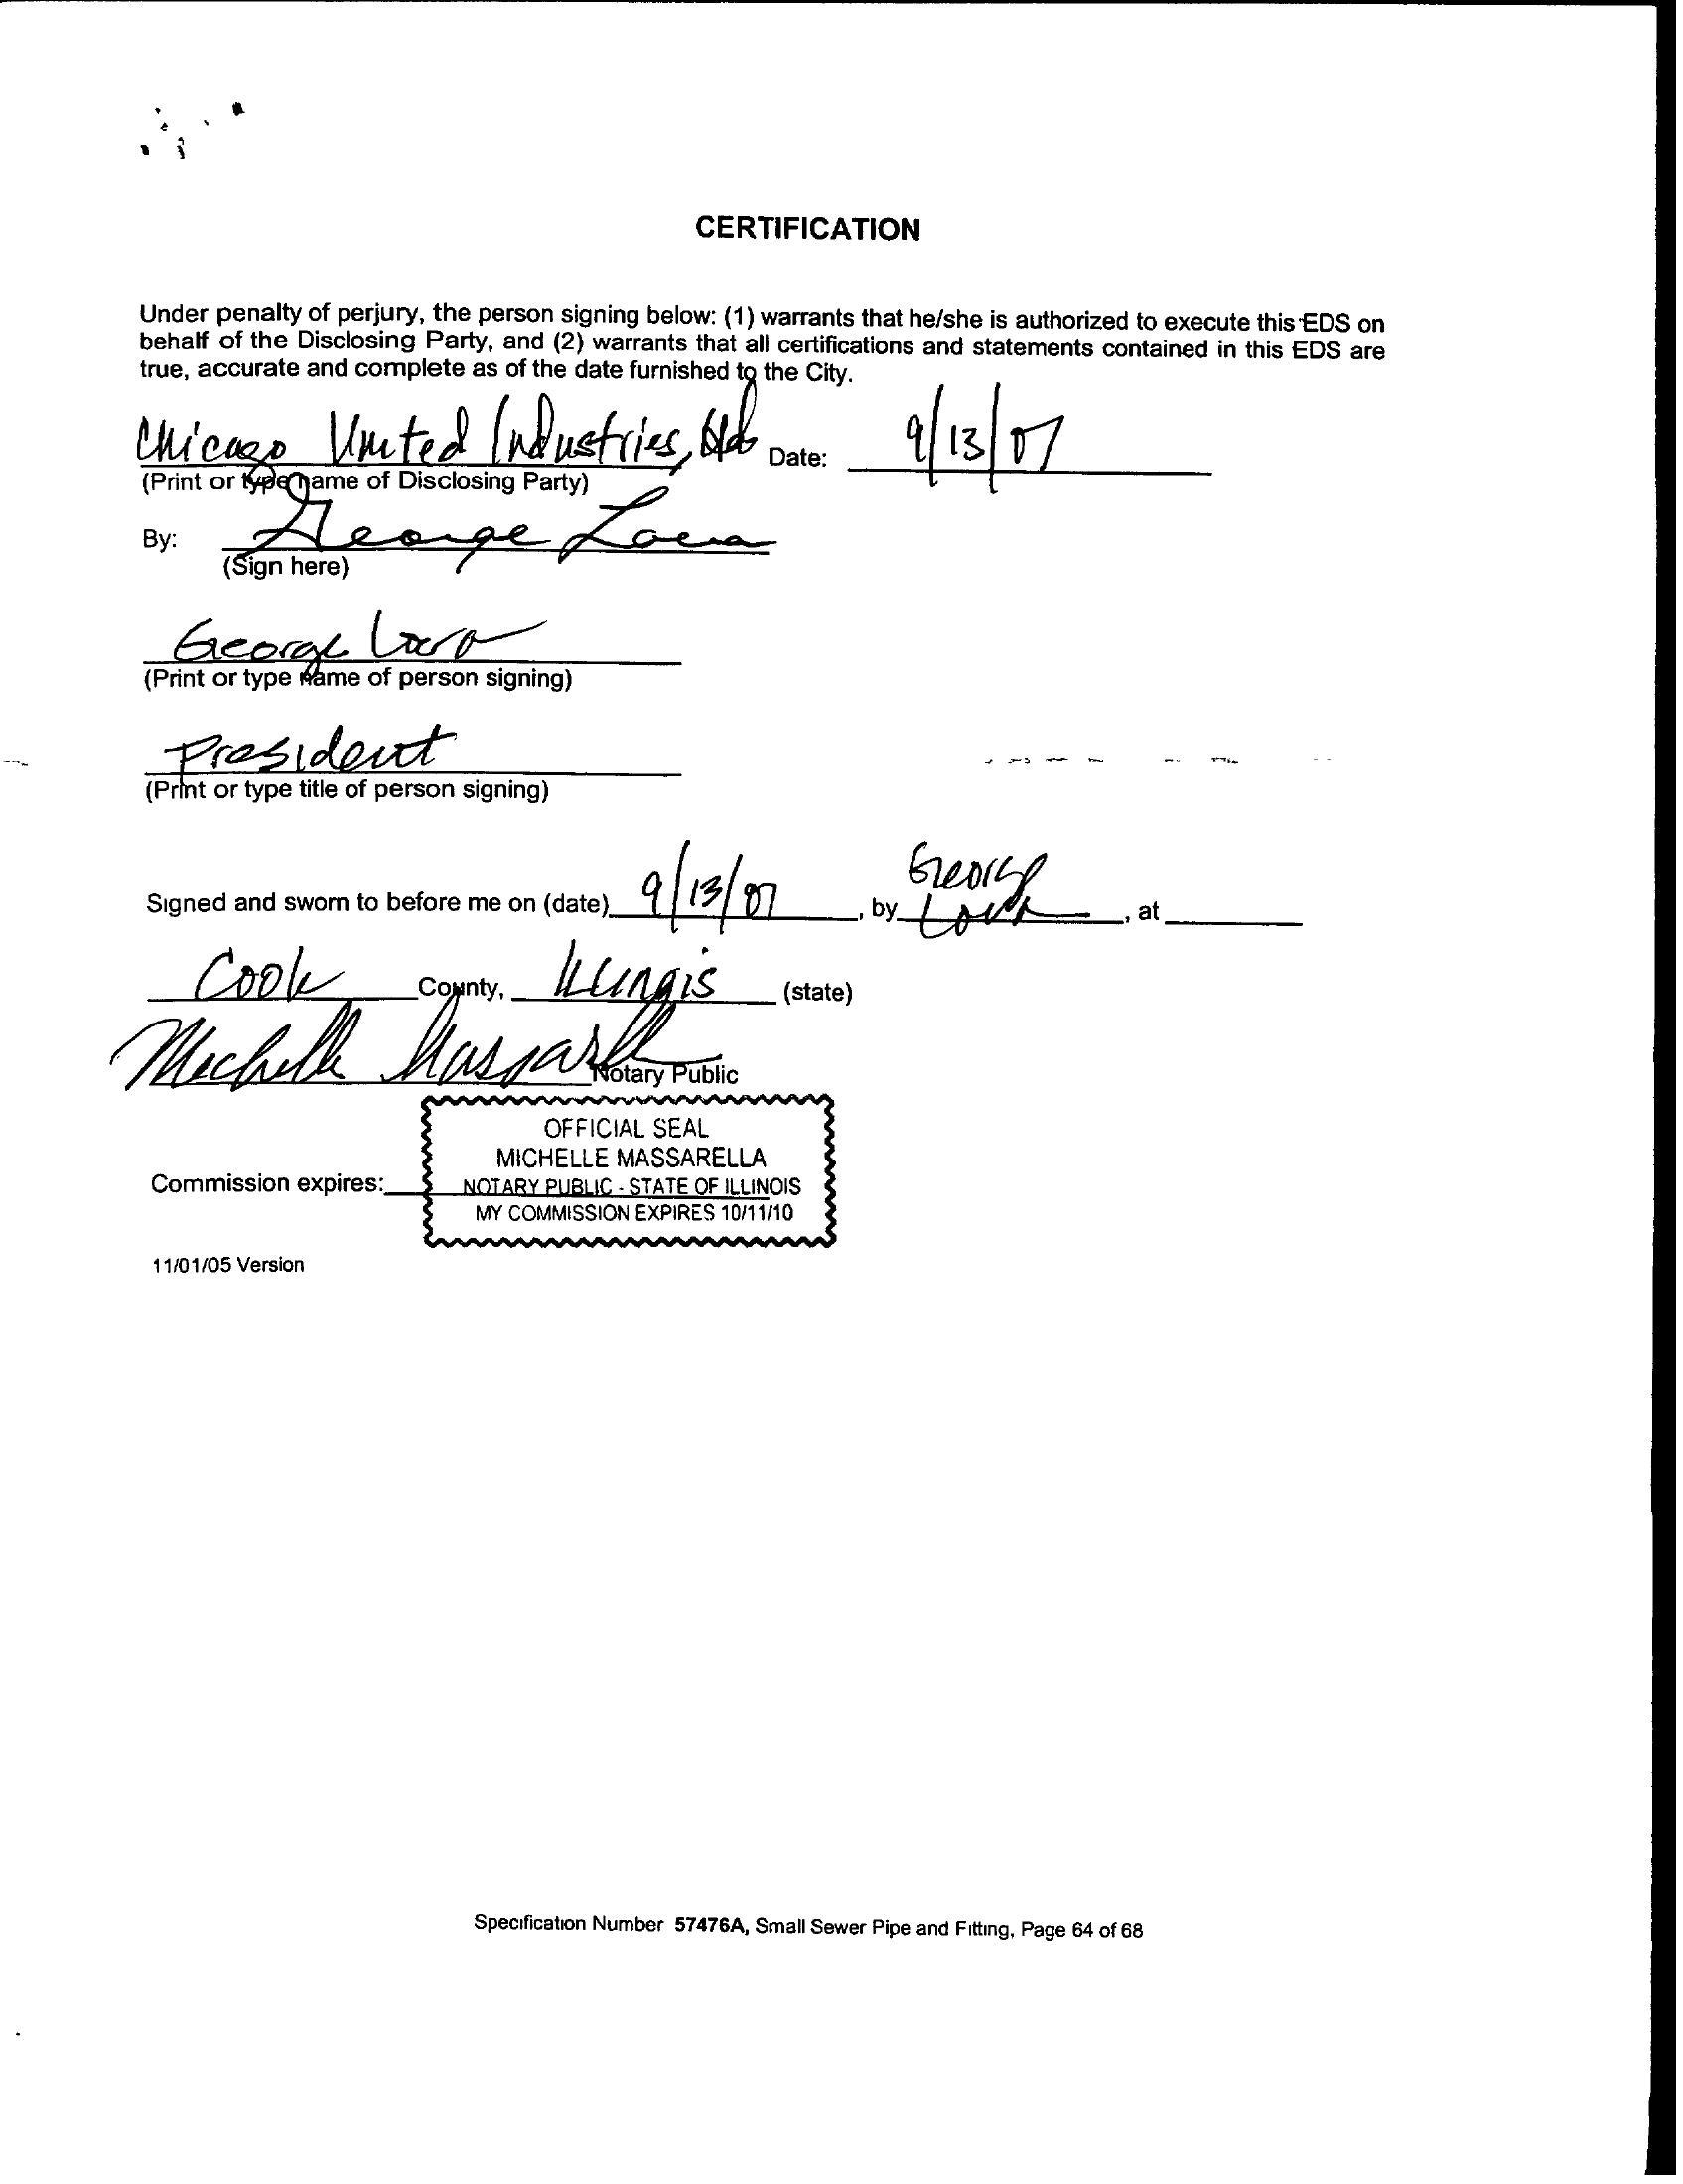 CERTIFICATION
Under penalty of perjury, the person signing below: (1) warrants that he/she is authorized to execute this EDS on
behalf of the Disclosing Party, and (2) warrants that all certifications and statements contained in this EDS are
true, accurate and complete as of the date furnished to the City.
Chicago United Industries, Ltd Date: 9/13/07
(Print or type name of Disclosing Party)
By: George Loera
(Sign here)
George Loera
(Print or type name of person signing)
President
(Print or type title of person signing)
Signed and sworn to before me on (date) 9/13/07, by George Loera, at
Cook County, Illinois (state)
Michelle Massarella Notary Public
OFFICIAL SEAL
MICHELLE MASSARELLA
Commission expires: NOTARY PUBLIC - STATE OF ILLINOIS
MY COMMISSION EXPIRES 10/11/10
11/01/05 Version
Specification Number 57476A, Small Sewer Pipe and Fitting, Page 64 of 68